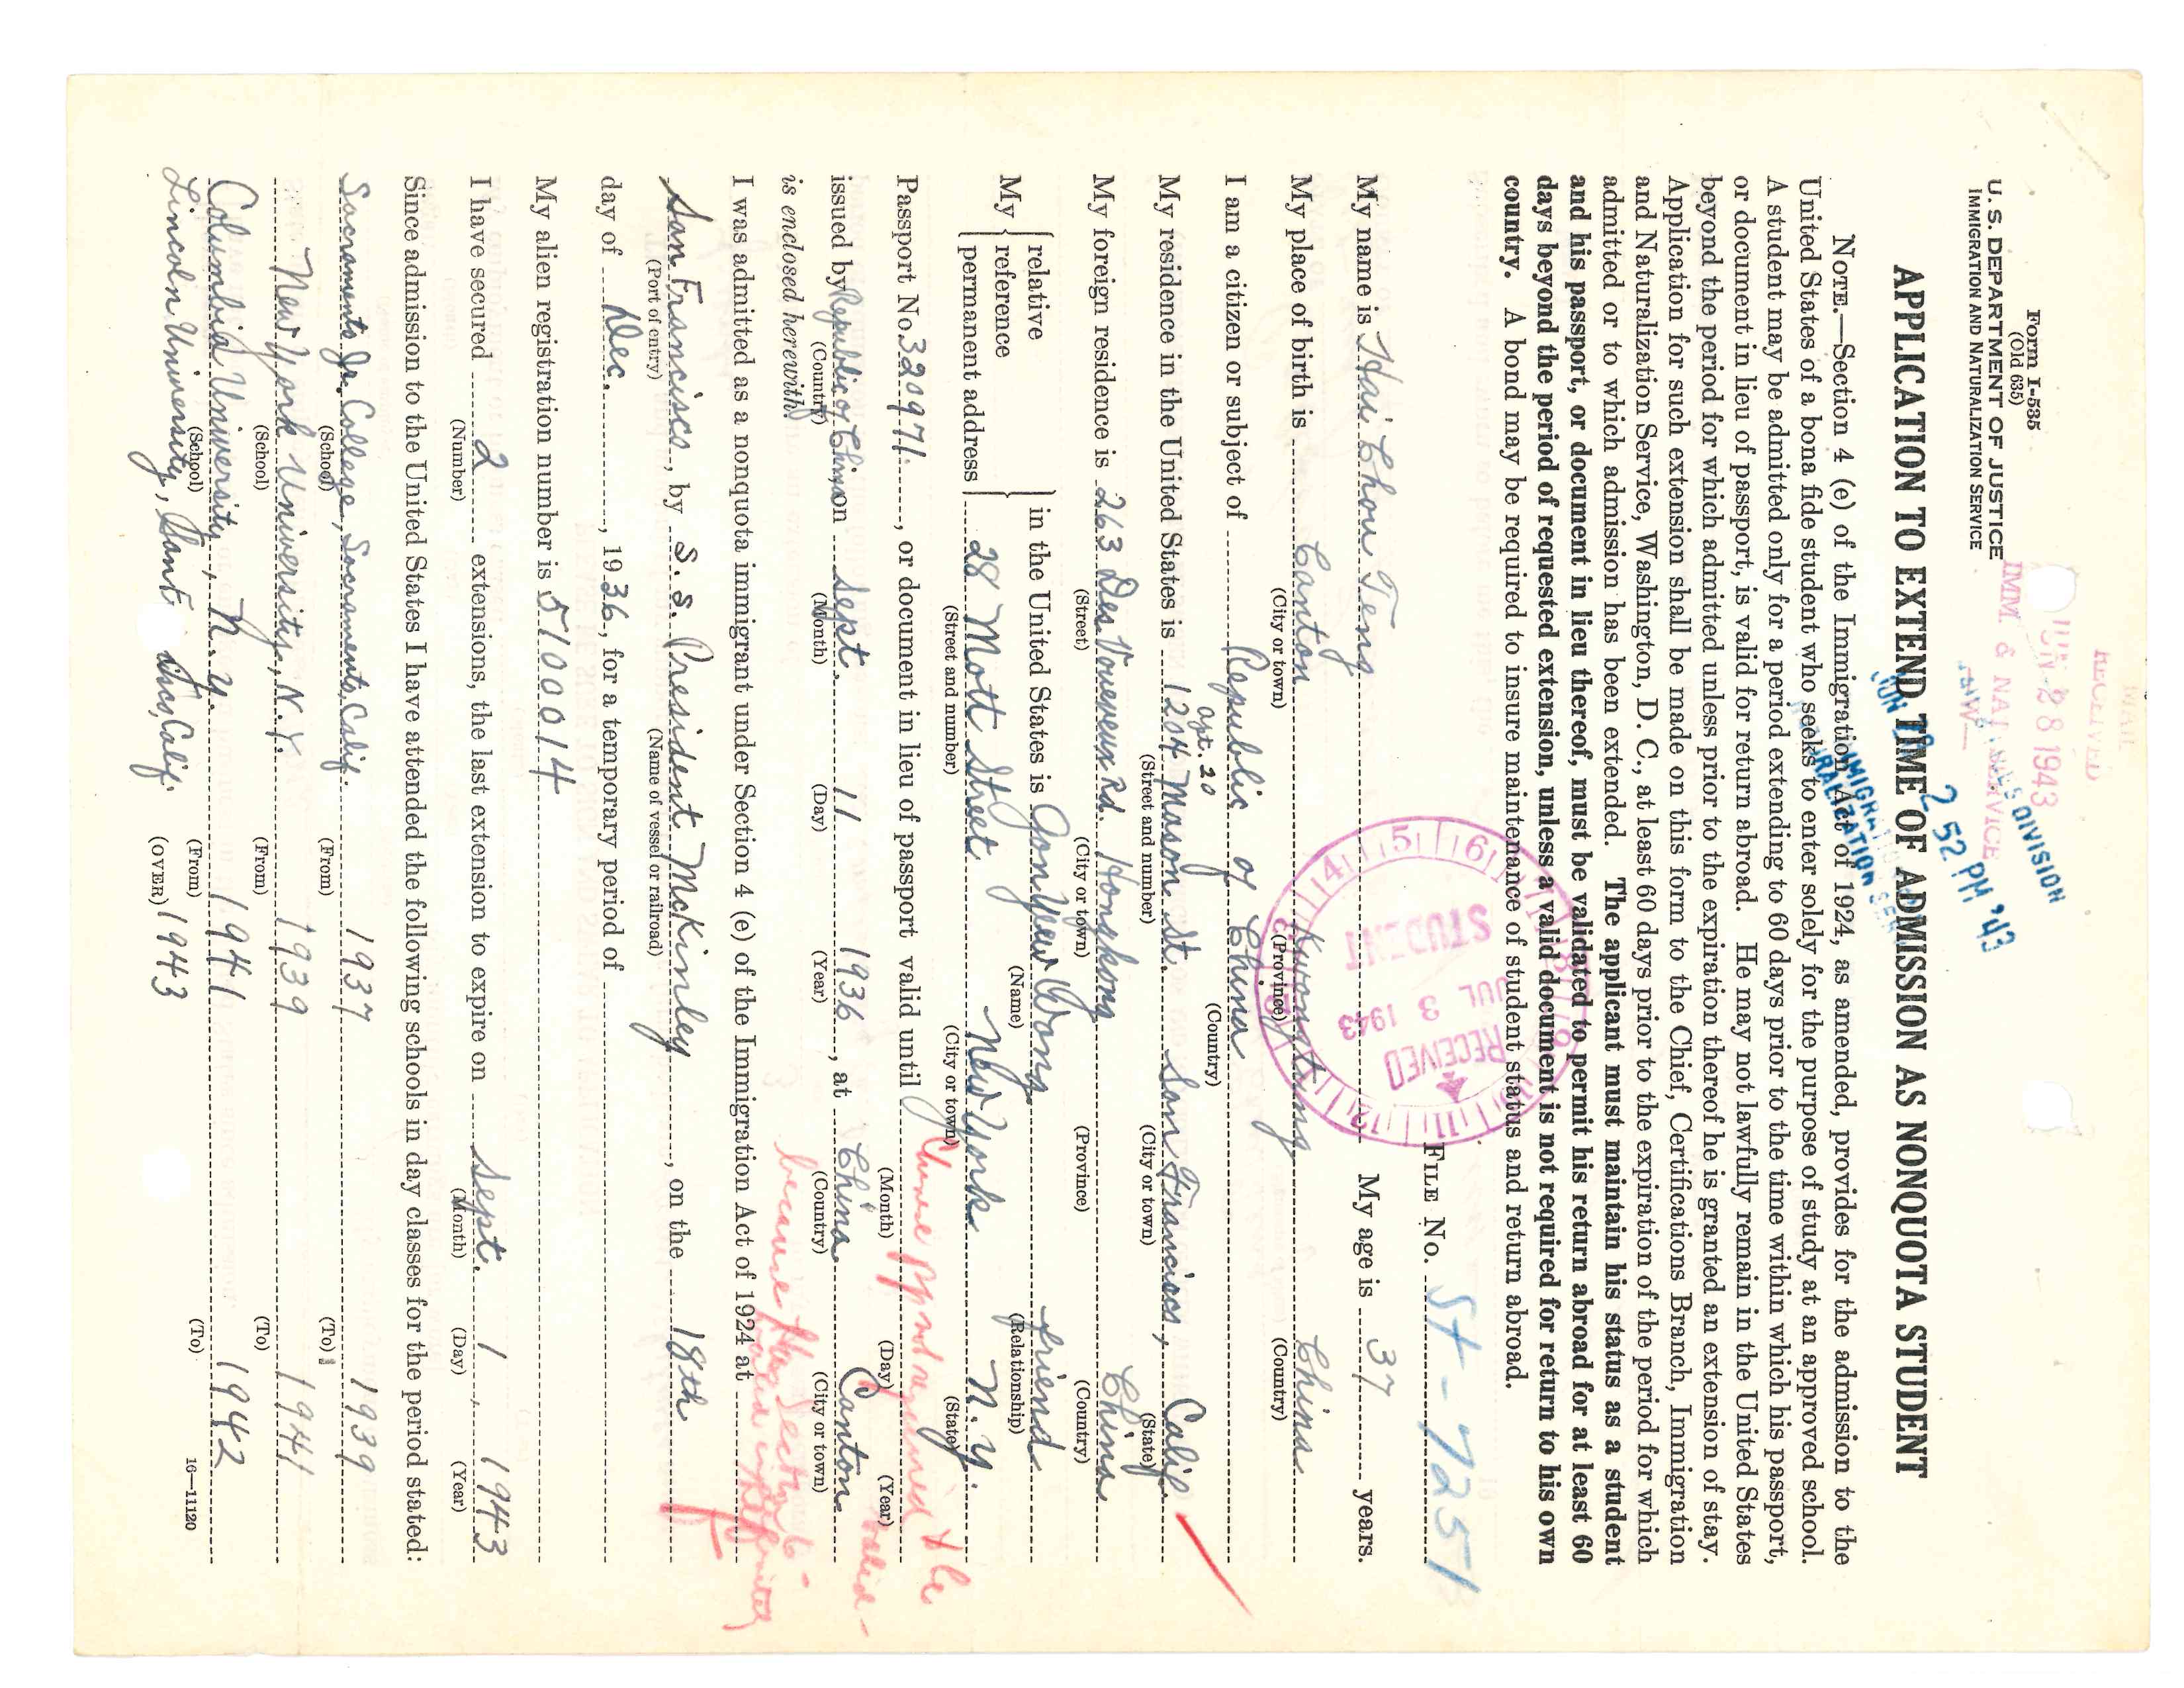 MAIL
RECEIVED
JUN 28 1943
IMM. & NAT. SERVICE
—W—
DIVISION
JUN 28 2 52 PM '43
Form I-535
(Old 635)
U. S. DEPARTMENT OF JUSTICE
IMMIGRATION AND NATURALIZATION SERVICE
APPLICATION TO EXTEND TIME OF ADMISSION AS NONQUOTA STUDENT
NOTE.—Section 4 (e) of the Immigration Act of 1924, as amended, provides for the admission to the
United States of a bona fide student who seeks to enter solely for the purpose of study at an approved school.
A student may be admitted only for a period extending to 60 days prior to the time within which his passport,
or document in lieu of passport, is valid for return abroad. He may not lawfully remain in the United States
beyond the period for which admitted unless prior to the expiration thereof he is granted an extension of stay.
Application for such extension shall be made on this form to the Chief, Certifications Branch, Immigration
and Naturalization Service, Washington, D. C., at least 60 days prior to the expiration of the period for which
admitted or to which admission has been extended. The applicant must maintain his status as a student
and his passport, or document in lieu thereof, must be validated to permit his return abroad for at least 60
days beyond the period of requested extension, unless a valid document is not required for return to his own
country. A bond may be required to insure maintenance of student status and return abroad.
RECEIVED
JUL 3 1943
STUDENT
FILE No. St-7251
My name is Hai Chou Teng My age is 37 years.
My place of birth is Canton Kwongtung China
(City or town) (Province) (Country)
I am a citizen or subject of Republic of China
(Country)
apt. 20
My residence in the United States is 1204 Mason St. San Francisco, Calif.
(Street and number) (City or town) (State)
My foreign residence is 263 Des Voueveux Rd. Hongkong China
(Street) (City or town) (Province) (Country)
My relative reference permanent address in the United States is Gon Yeew Wong friend
(Name) (Relationship)
28 Mott Street New York N.Y.
(Street and number) (City or town) (State)
Chinese pp not required to be valid
Passport No. 320971, or document in lieu of passport valid until
(Month) (Day) (Year)
issued by Republic of China on Sept. 11 1936, at China Canton
(Country) (Month) (Day) (Year) (Country) (City or town)
is enclosed herewith.
because Section 6
valid indefinitely
I was admitted as a nonquota immigrant under Section 4 (e) of the Immigration Act of 1924 at
San Francisco, by S. S. President McKinley, on the 18th
(Port of entry) (Name of vessel or railroad)
day of Dec., 1936, for a temporary period of
My alien registration number is 5100014
I have secured 2 extensions, the last extension to expire on Sept. 1, 1943
(Number) (Month) (Day) (Year)
Since admission to the United States I have attended the following schools in day classes for the period stated:
Sacramento Jr. College, Sacramento, Calif. 1937 1939
(School) (From) (To)
New York University, N.Y. 1939 1941
(School) (From) (To)
Columbia University, N.Y. 1941 1942
(School) (From) (To) 16—11120
Lincoln University, San F isco, Calif. (OVER) 1943